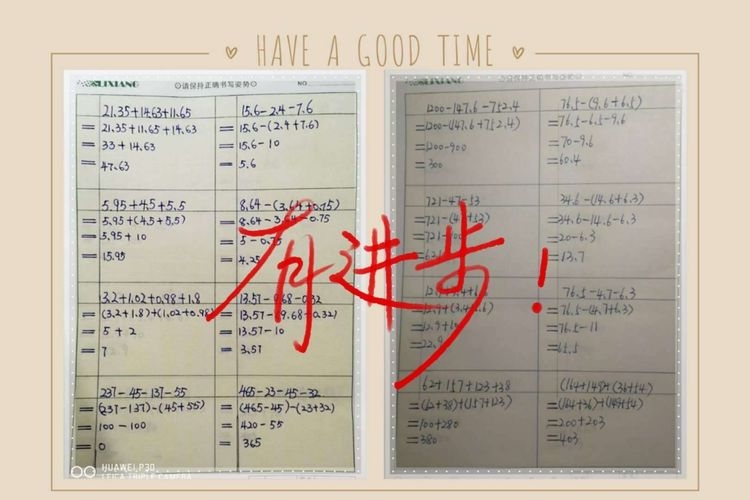 HAVE A GOOD TIME
LIXIANG
请保持正确书写姿势
NO.
21.35+14.63+11.65
=21.35+11.65+14.63
=33+14.63
=47.63
15.6-2.4-7.6
=15.6-(2.4+7.6)
=15.6-10
=5.6
5.95+4.5+5.5
=5.95+(4.5+5.5)
=5.95+10
=15.95
8.64-(3.64+0.75)
=8.64-3.64-0.75
=5-0.75
=4.25
3.2+1.02+0.98+1.8
=(3.2+1.8)+(1.02+0.98)
=5+2
=7
13.57-9.68-0.32
=13.57-(9.68+0.32)
=13.57-10
=3.57
237-45-137-55
=(237-137)-(45+55)
=100-100
=0
465-23-45-32
=(465-45)-(23+32)
=420-55
=365
HUAWEI P30
LEICA TRIPLE CAMERA
请保持正确书写姿势
NO.
1200-147.6-752.4
=1200-(147.6+752.4)
=1200-900
=300
76.5-(9.6+6.5)
=76.5-6.5-9.6
=70-9.6
=60.4
721-47-53
34.6-(14.6+6.3)
=34.6-14.6-6.3
=20-6.3
=13.7
76.5-4.7-6.3
=76.5-(4.7+6.3)
=76.5-11
=65.5
62+157+123+38
=(62+38)+(157+123)
=100+280
=380
=200+203
=403
有进步!